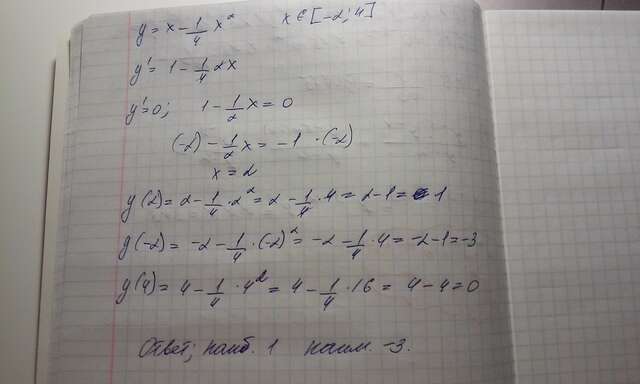 y = x - 1/4 x² x ∈ [-2; 4]
y' = 1 - 1/4 2x
y' = 0; 1 - 1/2 x = 0
(-2) - 1/2 x = -1 · (-2)
x = 2
y(2) = 2 - 1/4 · 2² = 2 - 1/4 · 4 = 2 - 1 = 1
y(-2) = -2 - 1/4 · (-2)² = -2 - 1/4 · 4 = -2 - 1 = -3
y(4) = 4 - 1/4 · 4² = 4 - 1/4 · 16 = 4 - 4 = 0
Ответ; наиб. 1 наим. -3.